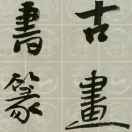 古畫
書篆